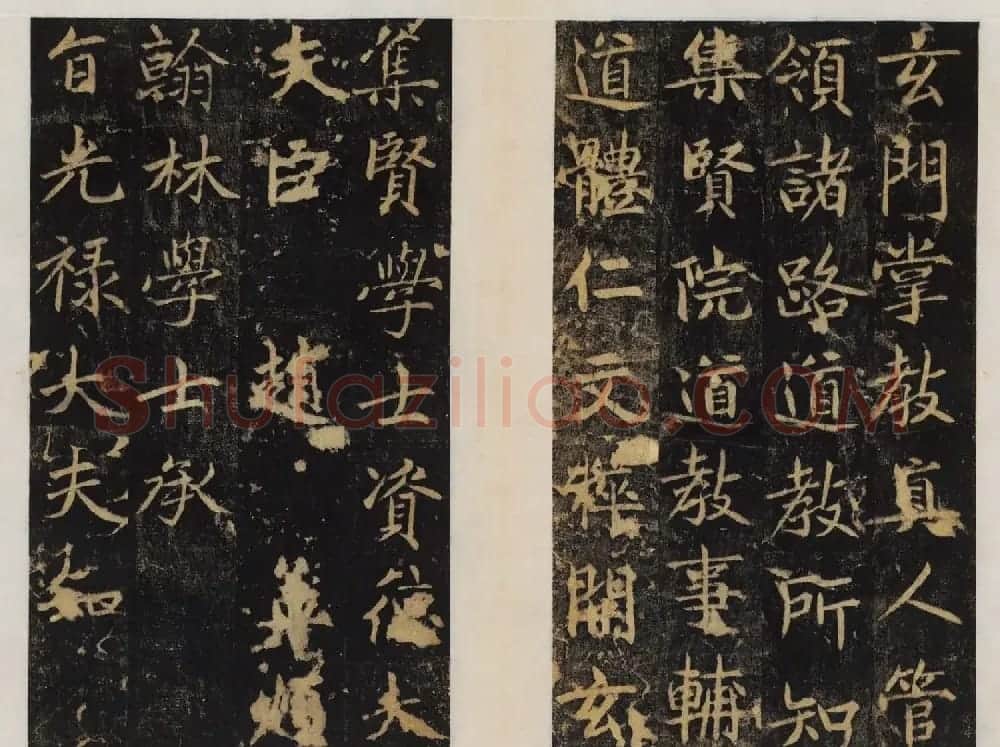 玄門掌教真人管
領諸路道教所知
集賢院道教事輔
道體仁文粹開玄
集賢學士資德大
夫臣趙
翰林學士承
旨光祿大夫知
Shufaziliao.COM